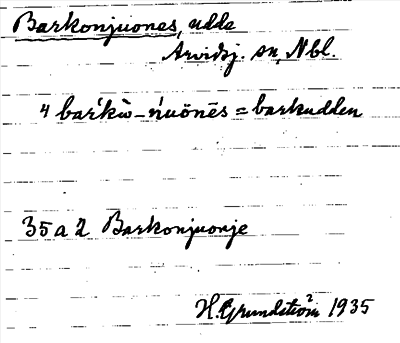 Barkonjuones, udde
Arvidsj. sn, Nbl.
4 bar'kŭ̀-ńuönēs = barkudden
35 a 2 Barkonjuonje
H. Grundström 1935